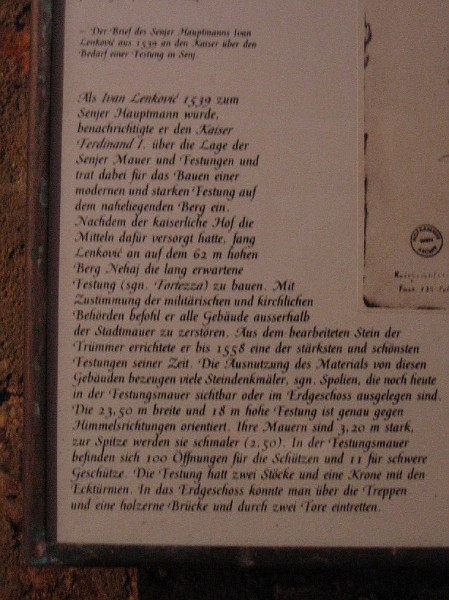 – Der Brief des Senjer Hauptmanns Ivan
Lenković aus 1539 an den Kaiser über den
Bedarf einer Festung in Senj.
Als Ivan Lenković 1539 zum
Senjer Hauptmann wurde,
benachrichtigte er den Kaiser
Ferdinand I. über die Lage der
Senjer Mauer und Festungen und
trat dabei für das Bauen einer
modernen und starken Festung auf
dem naheliegenden Berg ein.
Nachdem der kaiserliche Hof die
Mitteln dafür versorgt hatte, fang
Lenković an auf dem 62 m hohen
Berg Nehaj die lang erwartene
Festung (sgn. Fortezza) zu bauen. Mit
Zustimmung der militärischen und kirchlichen
Behörden befohl er alle Gebäude ausserhalb
der Stadtmauer zu zerstören. Aus dem bearbeiteten Stein der
Trümmer errichtete er bis 1558 eine der stärksten und schönsten
Festungen seiner Zeit. Die Ausnutzung des Materials von diesen
Gebäuden bezeugen viele Steindenkmäler, sgn. Spolien, die noch heute
in der Festungsmauer sichtbar oder im Erdgeschoss ausgelegen sind.
Die 23,50 m breite und 18 m hohe Festung ist genau gegen
Himmelsrichtungen orientiert. Ihre Mauern sind 3,20 m stark,
zur Spitze werden sie schmaler (2,50). In der Festungsmauer
befinden sich 100 Öffnungen für die Schützen und 11 für schwere
Geschütze. Die Festung hatt zwei Stöcke und eine Krone mit den
Ecktürmen. In das Erdgeschoss konnte man über die Treppen
und eine holzerne Brücke und durch zwei Tore eintretten.